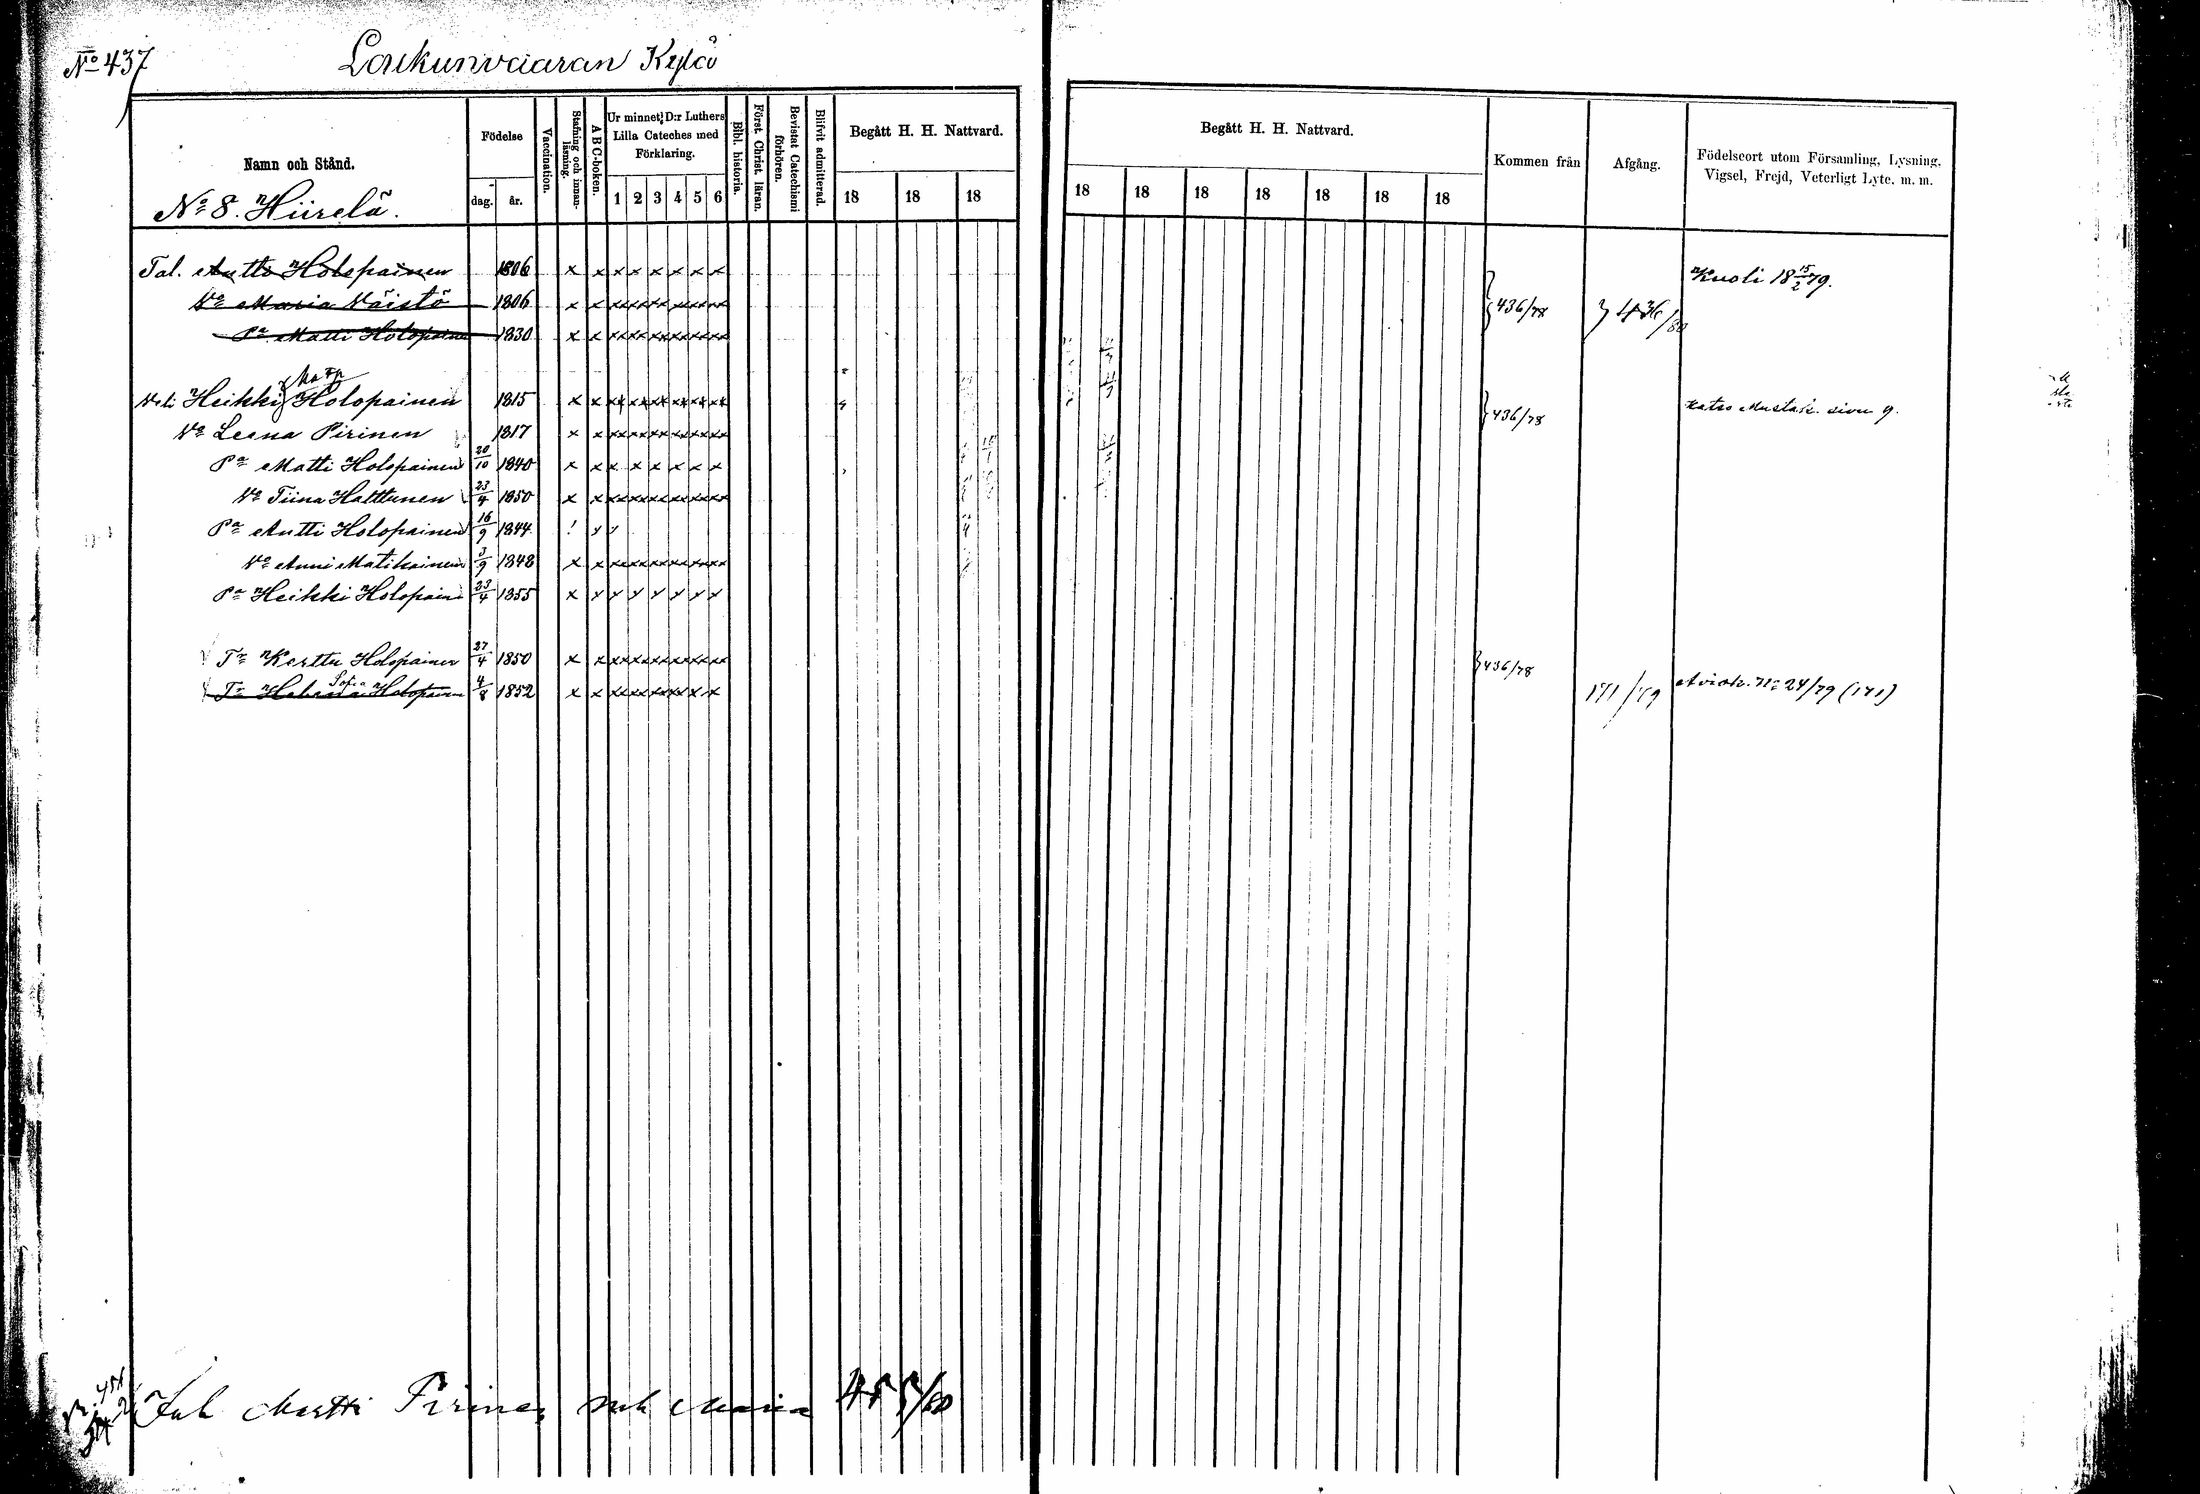 No 437
Loukunvaaran Kylä
Namn och Stånd.
Födelse
dag.
år.
Vaccination.
Stafning och innanläsning.
ABC-boken.
Ur minnet: D:r Luthers Lilla Cateches med Förklaring.
1 2 3 4 5 6
Bibl. historia.
Först. Christ. läran.
Bevistat Catechismi förhören.
Blifvit admitterad.
Begått H. H. Nattvard.
18 18 18
Begått H. H. Nattvard.
18 18 18 18 18 18 18
Kommen från
Afgång.
Födelseort utom Församling, Lysning, Vigsel, Frejd, Veterligt Lyte, m. m.
No 8. Hiirelä.
Tal. Antti Holopainen 1806 Kuoli 18 15/2 79.
Vo Maria Väistö 1806 436/78 436/80
Pa Matti Holopainen 1830
Veli Heikki Holopainen 1815 436/78 katso Mustak. sivu 9.
Vo Leena Pirinen 1817
Pa Matti Holopainen 20/10 1840
Vo Tiina Halttunen 23/4 1850
Pa Antti Holopainen 16/9 1844
Vo Anni Matikainen 3/9 1848
Pa Heikki Holopaine 23/4 1855
Tr Kerttu Holopainen 27/4 1850 436/78
Tr Helena Sofia Holopainen 4/8 1852 171/79 Aviok. No 24/79 (171)
Martti Pirinen Maria